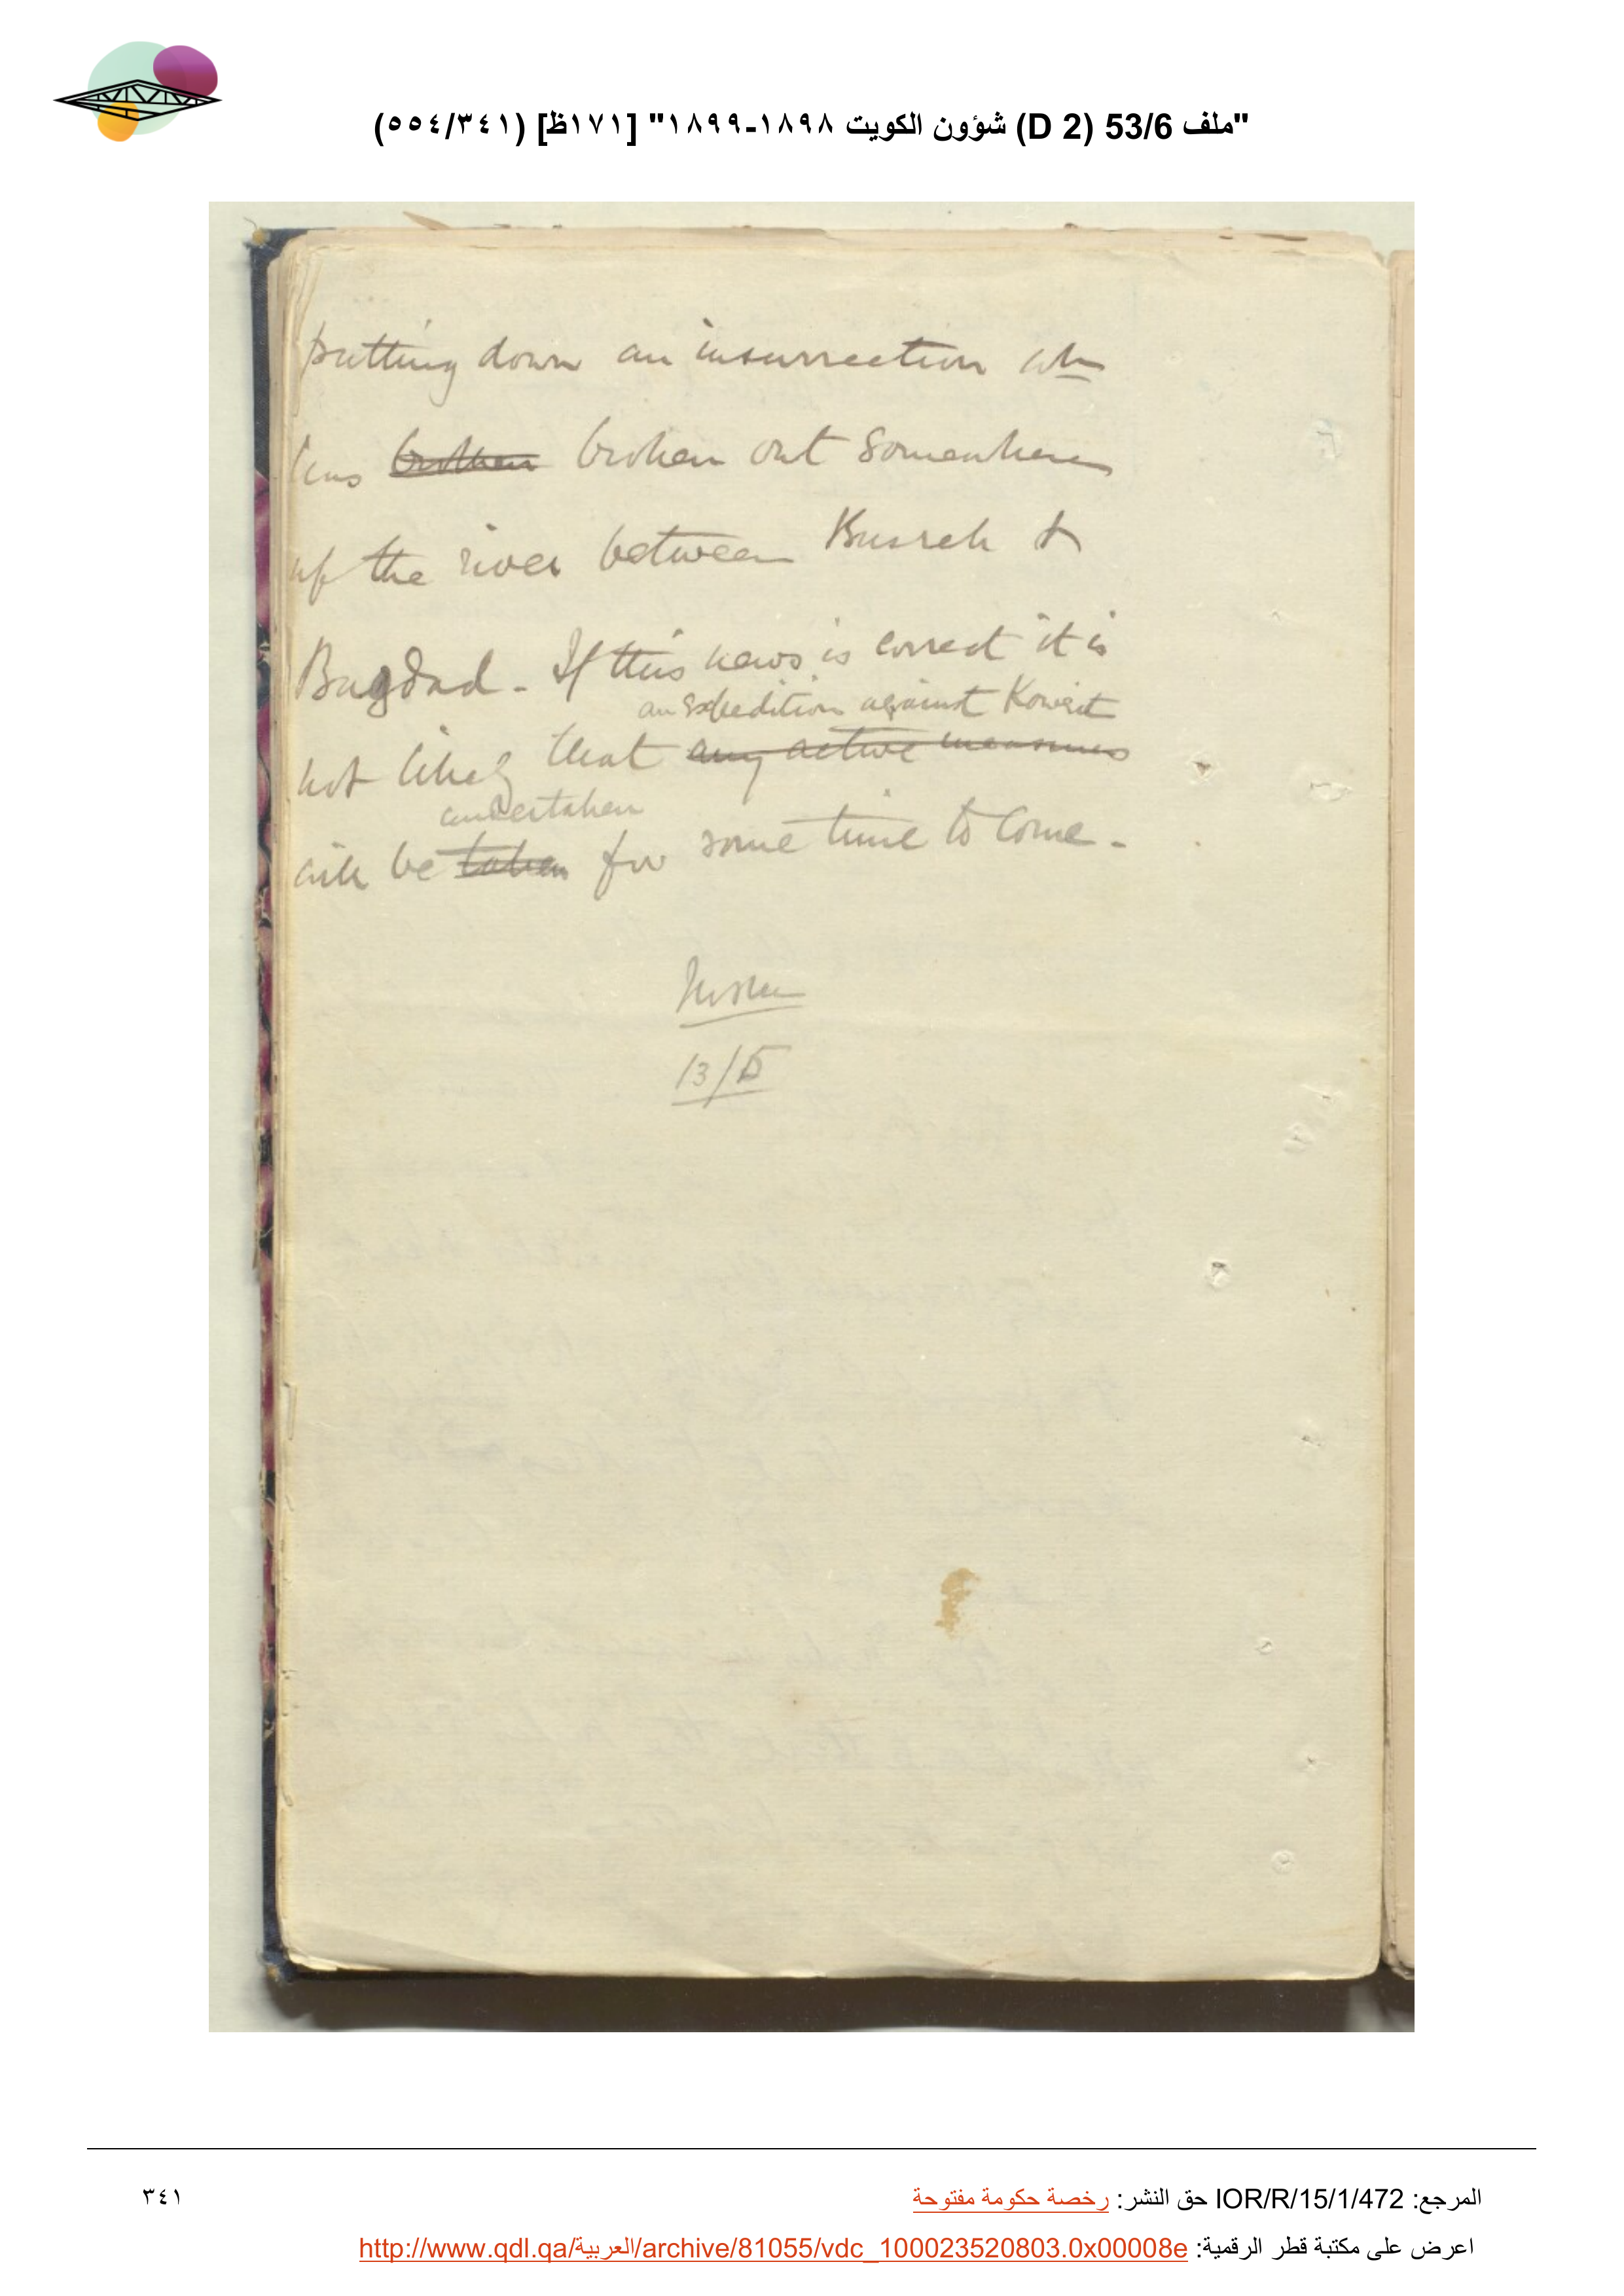 "ملف 53/6 (D 2) شؤون الكويت ١٨٩٨-١٨٩٩" [١٧١ظ] (٥٥٤/٣٤١)
putting down an insurrection wh
has broken broken out somewhere
up the river between Busreh &
Bagdad - If this news is correct it is
an expedition against Koweit
not likely that any active measures
undertaken
will be taken for some time to come -
13/5
المرجع: IOR/R/15/1/472 حق النشر: رخصة حكومة مفتوحة
٣٤١
اعرض على مكتبة قطر الرقمية: http://www.qdl.qa/العربية/archive/81055/vdc_100023520803.0x00008e